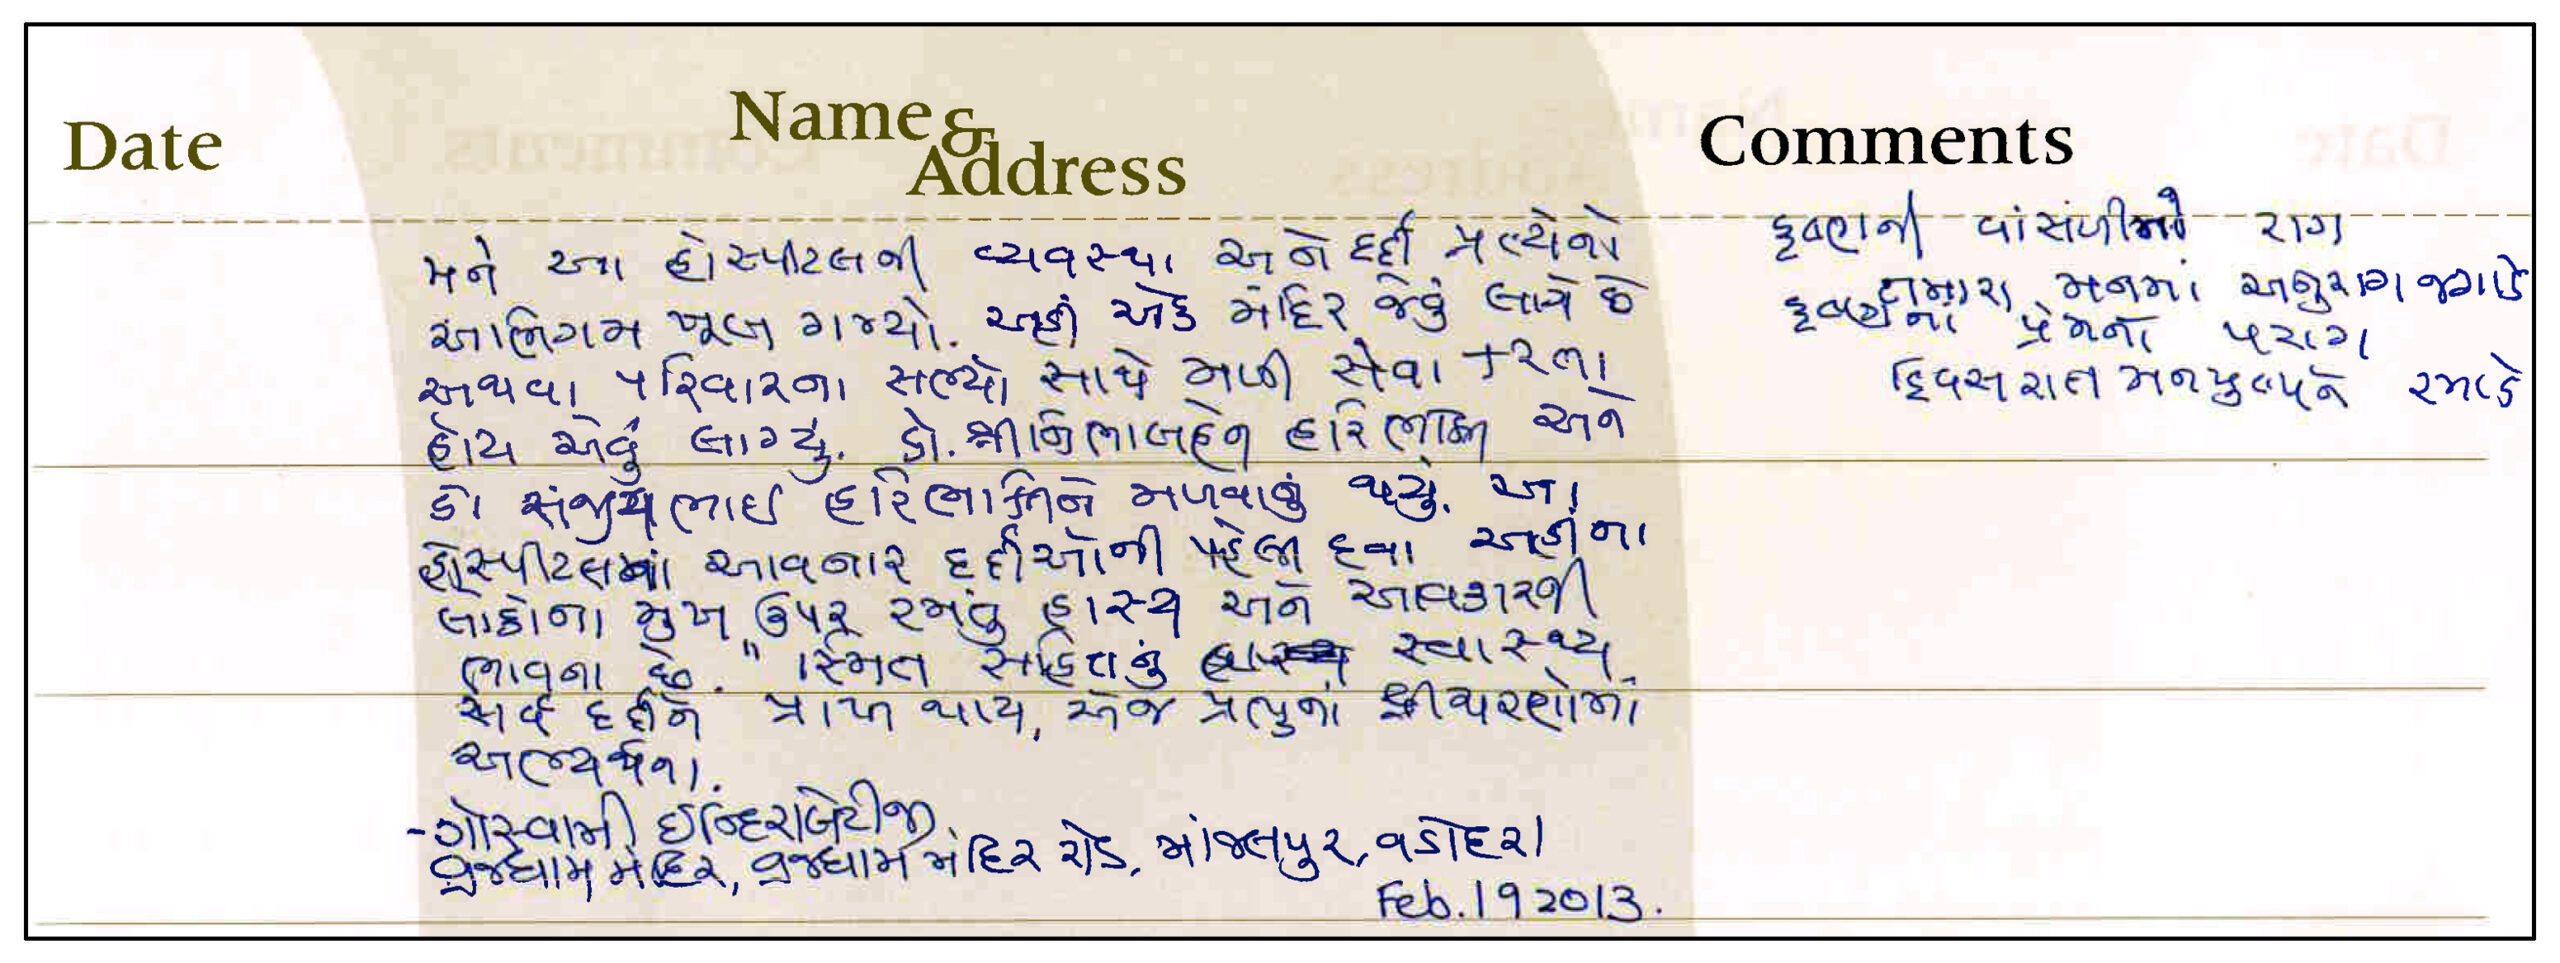 Date
Name &
Address
Comments
મને આ હોસ્પીટલની વ્યવસ્થા અને દર્દી પ્રત્યેનો
અભિગમ ખૂબ ગમ્યો. અહીં એક મંદિર જેવું લાગે છે
અથવા પરિવારના સભ્યો સાથે મળી સેવા કરતા
હોય એવું લાગ્યું. ડો. શ્રીમિતાબહેન હરિભક્તિ અને
ડો સંજયભાઈ હરિભક્તિને મળવાનું થયું. આ
હોસ્પીટલમાં આવનાર દર્દીઓની પહેલી દવા અહીંના
લોકોના મુખ ઉપર રમતું હાસ્ય અને આવકારની
ભાવના છે. "સ્મિત સહિતનું સ્વાસ્થ્ય
સર્વ દર્દીને પ્રાપ્ત થાય, એજ પ્રભુનાં શ્રીચરણોમાં
અભ્યર્થના.
- ગોસ્વામી ઈન્દિરાબેટીજી
વ્રજધામ મંદિર, વ્રજધામ મંદિર રોડ, માંજલપુર, વડોદરા
Feb. 19 2013.
કૃષ્ણની વાંસળીનો રાગ
તમારા મનમાં અનુરાગ જગાડે
કૃષ્ણના પ્રેમનો પરાગ
દિવસ રાત મનપુષ્પને રમાડે